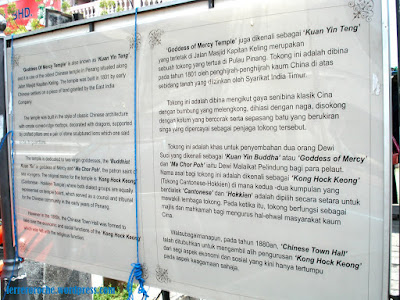 'Goddess of Mercy Temple' is also known as 'Kuan Yin Teng'
which is one of the oldest Chinese temple in Penang situated along
Jalan Masjid Kapitan Keling. The temple was built in 1801 by early
Chinese settlers on a piece of land granted by the East India
Company.
The temple was built in the style of classic Chinese architecture
with
is supported
The temple is dedicated to two virgin goddesses, the 'Buddhist
Kuan Yin' or goddess of Mercy and 'Ma Chor Poh', the patron saint of
sea voyagers. The original name of the temple is 'Kong Hock Keong'
(Cantonese - Hokkien Temple) where both dialect groups are equally
represented on its board. It served as a council and tribunal of the
Chinese community in the early years of Penang.
However in the 1880s, the Chinese Town Hall was formed to
take over the economic and social functions of the 'Kong Hock Keong'
religious function.
'Goddess of Mercy Temple' juga dikenali sebagai 'Kuan Yin Teng'
yang terletak di Jalan Masjid Kapitan Keling merupakan
sebuah tokong yang tertua di Pulau Pinang. Tokong ini adalah dibina
pada tahun 1801 oleh penghijrah-penghijrah kaum China di atas
sebidang tanah yang diizinkan oleh Syarikat India Timur.
Tokong ini adalah dibina mengikut gaya senibina klasik Cina
dengan bumbung yang melengkong, dihiasi dengan naga, disokong
dengan kolum yang bercorak serta sepasang batu yang berukiran
singa yang dipercayai sebagai penjaga tokong tersebut.
Tokong ini adalah khas untuk penyembahan dua orang Dewi
Suci yang dikenali sebagai 'Kuan Yin Buddha' atau 'Goddess of Mercy'
dan 'Ma Chor Poh' iaitu Dewi Malaikat Pelindung bagi para pelaut.
Nama asal bagi tokong ini adalah dikenali sebagai 'Kong Hock Keong'
(Tokong Cantonese-Hokkien) di mana kedua -dua kumpulan yang
berdialek 'Cantonese' dan 'Hokkien' adalah dipilih secara setara untuk
mewakili lembaga tokong. Pada ketika itu, tokong berfungsi sebagai
majlis dan mahkamah bagi mengurus hal-ehwal masyarakat kaum
Cina.
Walaubagaimanapun, pada tahun 1880an, 'Chinese Town Hall'
telah ditubuhkan untuk mengambil alih pengurusan 'Kong Hock Keong'
dari segi aspek ekonomi dan sosial yang kini hanya tertumpu
pada aspek keagamaan sahaja.